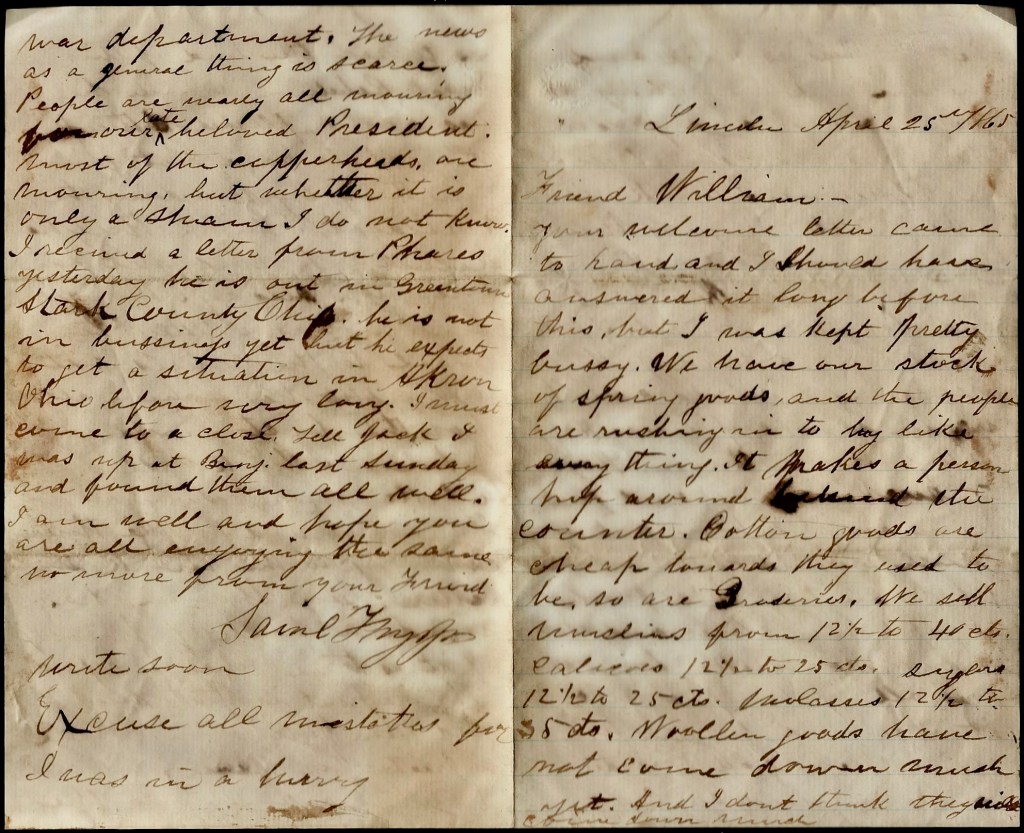 Lincoln April 25th/65
Friend William.—
Your welcome letter came
to hand and I Should have
answered it long before
this, but I was kept pretty
bussy. We have our stock
of spring goods, and the people
are rushing in to buy like
every thing. It Makes a person
hop around behind the
counter. Cotton goods are
cheap towards they used to
be, so are Groceries. We sell
muslins from 12½ to 40 cts.
Calicoes 12½ to 25 cts. sugars
12½ to 25 cts. Molasses 12½ to
35 cts. Woollen goods have
not come down much
yet. And I dont think they will
come down much
war department. The news
as a general thing is scarce.
People are nearly all mouring
for our late beloved President.
most of the copperheads, are
mouring, but whether it is
only a sham I do not know.
I recived a letter from Phares
yesterday he is out in Greentown
Stark County Ohio. he is not
in bussiness yet but he expects
to get a situation in Akron
Ohio before very long. I must
come to a close. Tell Jack I
was up at Benj. last Sunday
and found them all well.
I am well and hope you
are all enjoying the same
no more from your Friend
Saml
write soon
Excuse all mistakes for
I was in a hurry